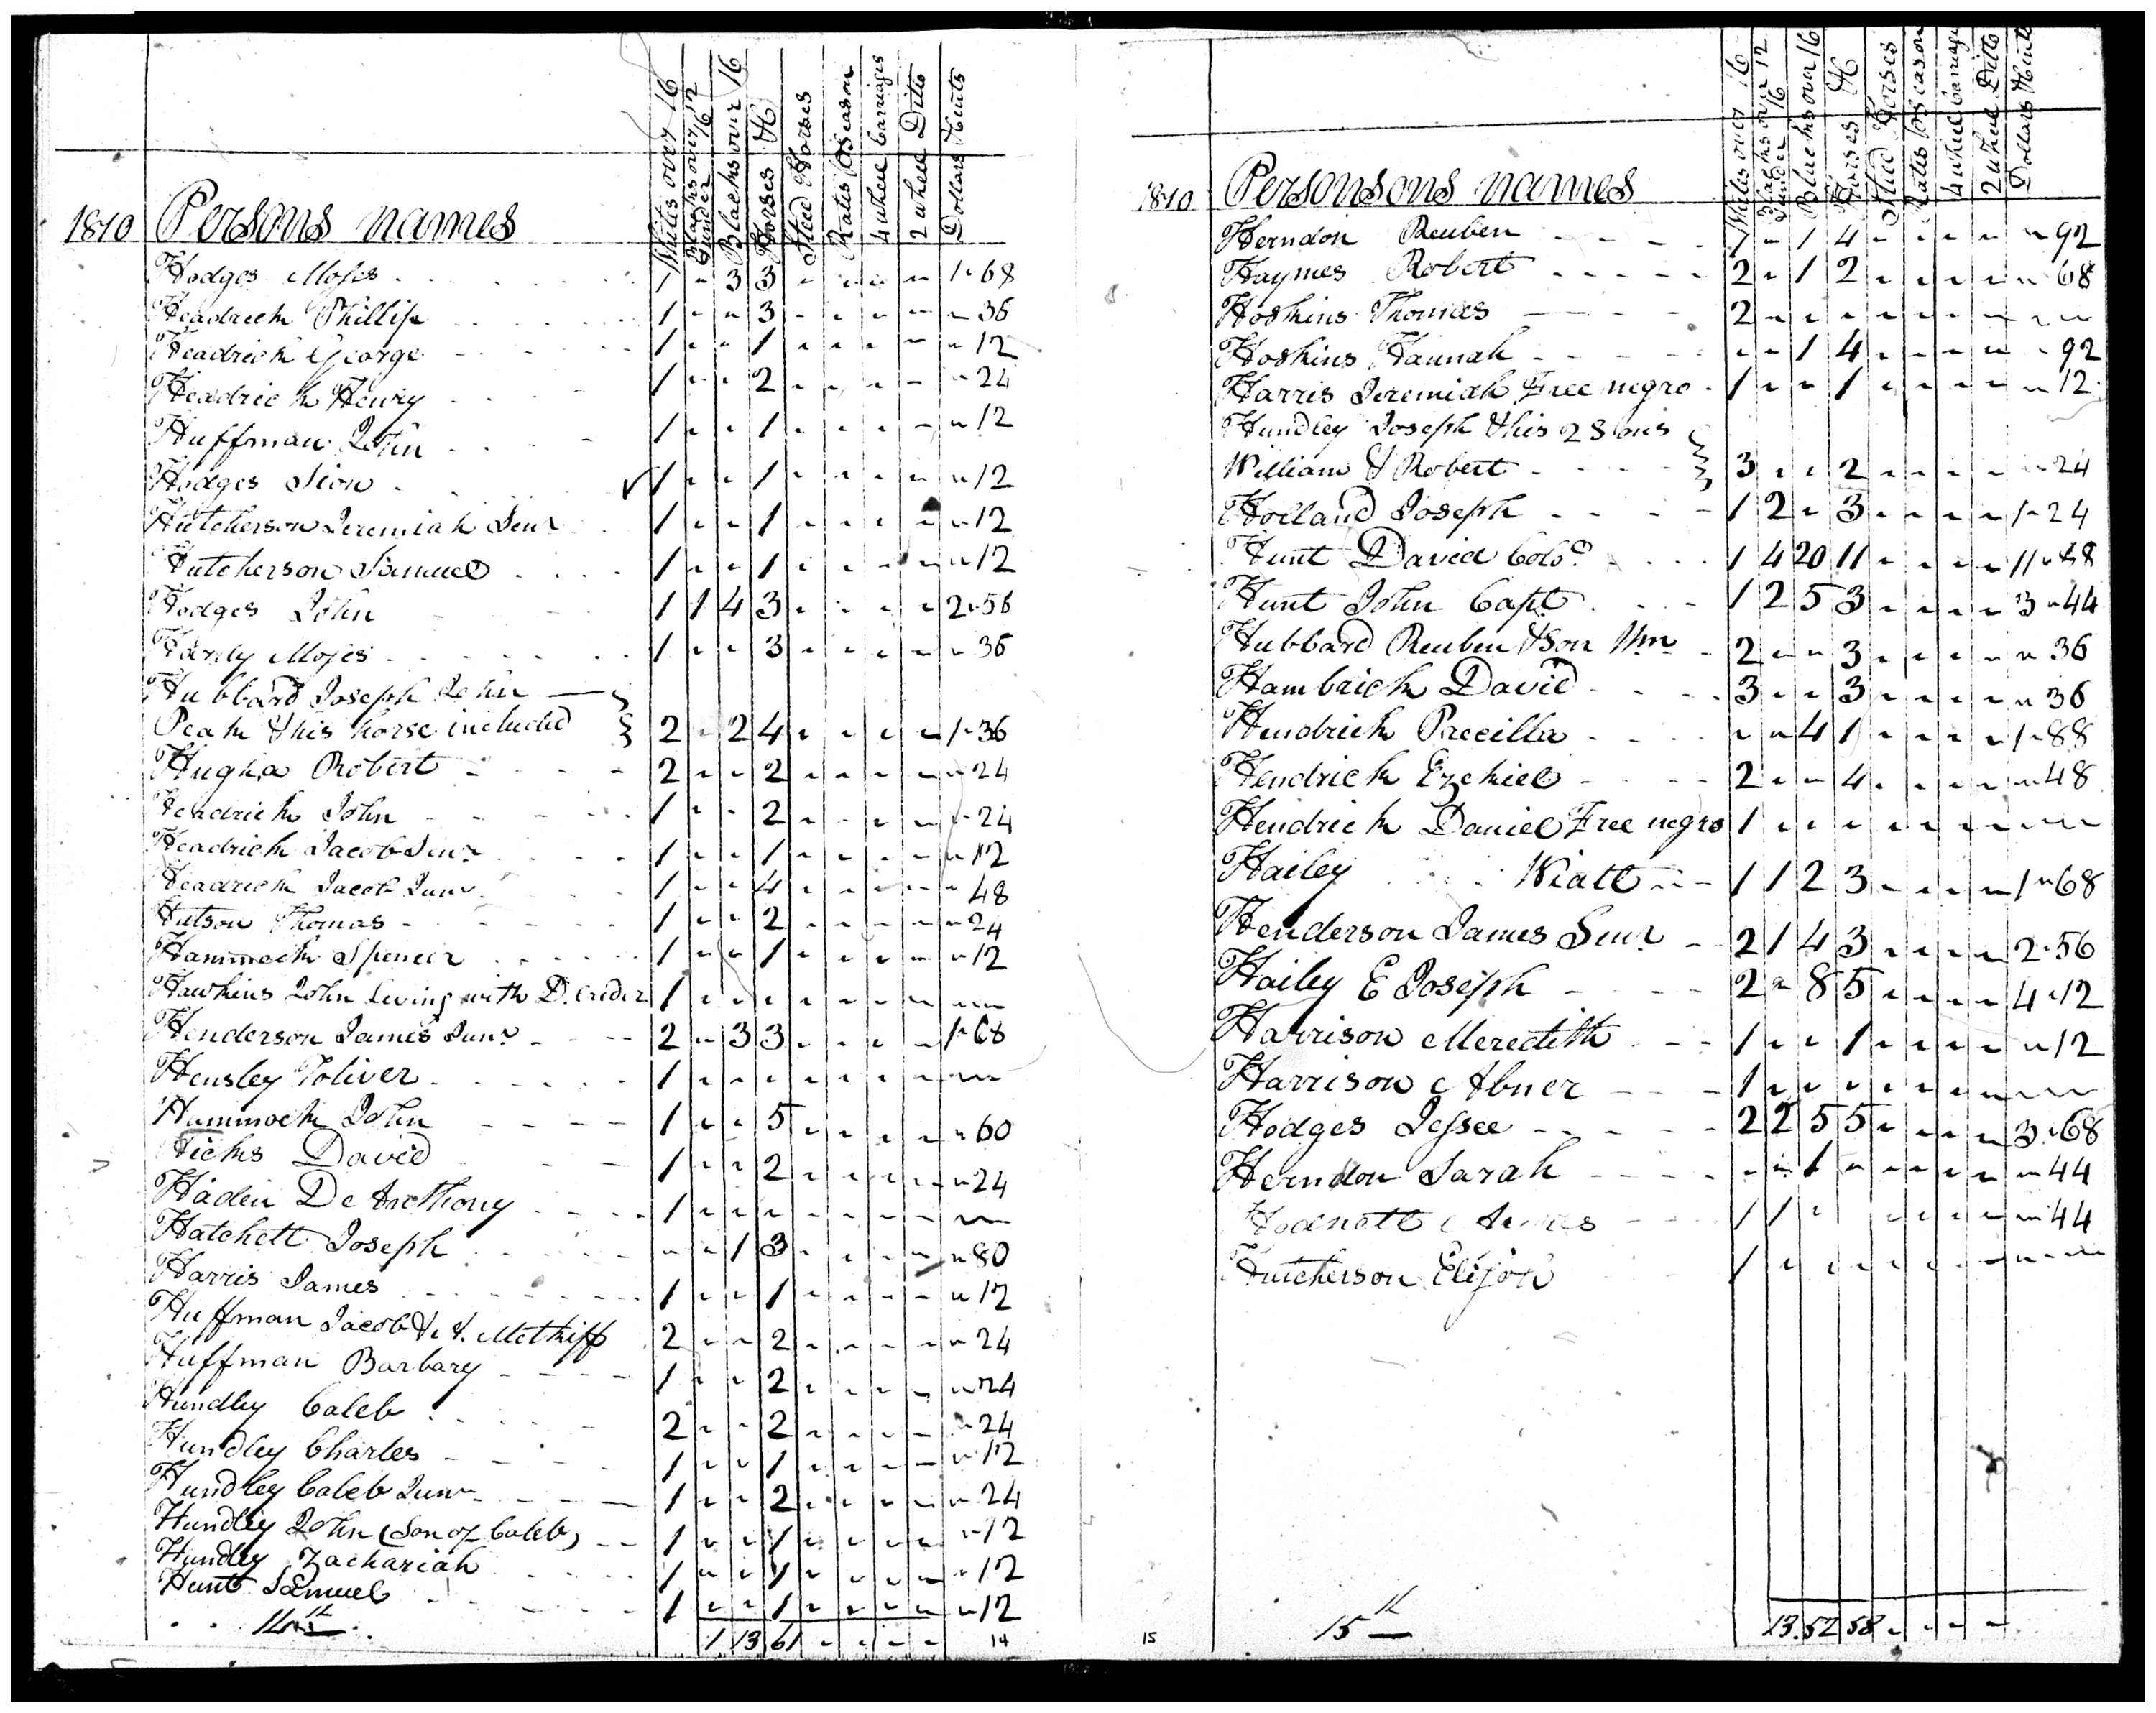 Whites over 16
Blacks over 12 & under 16
Blacks over 16
Horses &c
Stud Horses
Rates of Season
4 wheel Carriages
2 wheel Ditto
Dollars & Cents
1810 Persons names
Hodges Moses 1 - 3 3 - - - - 1-68
Headrick Phillip 1 - - 3 - - - - - 36
Headrick George 1 - - 1 - - - - - 12
Headrick Henry 1 - - 2 - - - - - 24
Huffman John 1 - - 1 - - - - - 12
Hodges Sion 1 - - 1 - - - - - 12
Hutcherson Jeremiah Senr 1 - - 1 - - - - - 12
Hutcherson Samuel 1 - - 1 - - - - - 12
Hodges John 1 1 4 3 - - - - 2-56
Hardy Moses 1 - - 3 - - - - - 36
Hubbard Joseph John
Peak & his horse included 2 - 2 4 - - - - 1-36
Robert 2 - - 2 - - - - - 24
Headrick John 1 - - 2 - - - - - 24
Headrick Jacob Senr 1 - - 1 - - - - - 12
Headrick Jacob Junr 1 - - 4 - - - - - 48
Hutson Thomas 1 - - 2 - - - - - 24
Hammock Spencer 1 - - 1 - - - - - 12
Hawkins John Living with D. 1 - - - - - - - -
Henderson James Junr 2 - 3 3 - - - - 1-68
Hensley Toliver 1 - - - - - - - -
Hammock John 1 - - 5 - - - - - 60
Hicks David 1 - - 2 - - - - - 24
Haden De Anthony 1 - - - - - - - -
Hatchett Joseph - - 1 3 - - - - - 80
Harris James 1 - - 1 - - - - - 12
Huffman Jacob & A. 2 - - 2 - - - - - 24
Huffman Barbary 1 - - 2 - - - - - 24
Hundley Caleb 2 - - 2 - - - - - 24
Hundley Charles 1 - - 1 - - - - - 12
Hundley Caleb Junr 1 - - 2 - - - - - 24
Hundley John (Son of Caleb) 1 - - 1 - - - - - 12
Hundley Zachariah 1 - - 1 - - - - - 12
Hunt Samuel 1 - - 1 - - - - - 12
1 13 61 - - - - 14
Whites over 16
Blacks over 12 & under 16
Blacks over 16
Horses &c
Stud Horses
Rates of season
4 wheel Carriages
2 wheel Ditto
Dollars & Cents
1810 Personsons names
Herndon Reuben 1 - 1 4 - - - - - 92
Haymes Robert 2 - 1 2 - - - - - 68
Hoskins Thomas 2 - - - - - - - -
Hoskins Hannah - - 1 4 - - - - - 92
Harris Jeremiah Free negro 1 - - 1 - - - - - 12
Hundley Joseph & his 2 Sons
William & Robert 3 - - 2 - - - - - 24
Holland Joseph 1 2 - 3 - - - - 1-24
Hunt David Colo. 1 4 20 11 - - - - 11-88
Hunt John Capt. 1 2 5 3 - - - - 3-44
Hubbard Reuben & Son Wm 2 - - 3 - - - - - 36
Hambrick David 3 - - 3 - - - - - 36
Hendrick Precilla - - 4 1 - - - - 1-88
Hendrick Ezekiel 2 - - 4 - - - - - 48
Hendrick Daniel Free negro 1 - - - - - - - -
Hailey Wiatt 1 1 2 3 - - - - 1-68
Henderson James Senr 2 1 4 3 - - - - 2-56
Hailey E Joseph 2 - 8 5 - - - - 4-12
Harrison Meredith 1 - - 1 - - - - - 12
Harrison Abner 1 - - - - - - - -
Hodges Jessee 2 2 5 5 - - - - 3-68
Herndon Sarah - - 1 - - - - - - 44
Hodnett 1 1 - - - - - - 44
Hutcherson Elijah 1 - - - - - - - -
15 15th 13.52 58 - - - -